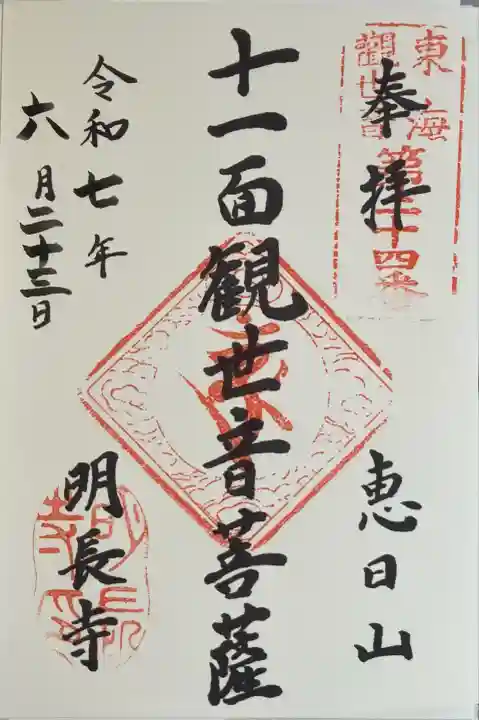 東海
觀世音
奉拝
恵日山
十一面観世音菩薩
令和七年
六月二十三日
明長寺